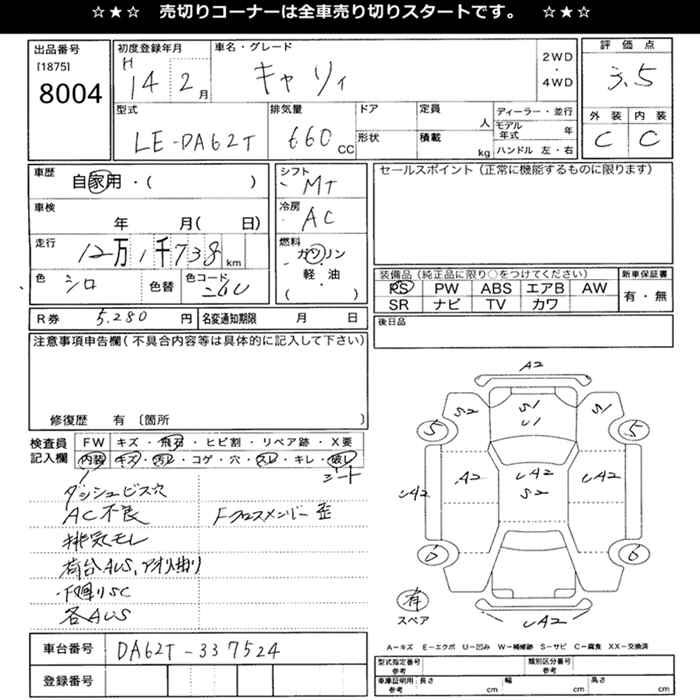 ☆★☆ 売切りコーナーは全車売り切りスタートです。 ☆★☆
出品番号
[1875]
8004
初度登録年月
H
14 2月
車名・グレード
キャリィ
2WD
・
4WD
評価点
3.5
型式
LE-DA62T
排気量
660 CC
ドア
形状
定員
人
積載
kg
ディーラー・並行
モデル年式 年
ハンドル 左・右
外装 内装
C C
車歴
自家用・( )
シフト
MT
セールスポイント(正常に機能するものに限ります)
車検
年 月( 日)
冷房
AC
走行
12万1千738km
燃料
ガソリン
・
軽・油
( )
色
シロ
色替
色コード
装備品(純正品に限り○をつけてください)
PS PW ABS エアB AW
SR ナビ TV カワ
新車保証書
有・無
R券 5.280 円
名変通知期限 月 日
後日品
注意事項申告欄(不具合内容等は具体的に記入して下さい)
修復歴 有〔箇所 〕
検査員
記入欄
FW キズ・飛石・ヒビ割・リペア跡・X要
内装 キズ・汚レ・コゲ・穴・スレ・キレ・破レ
シート
ダッシュビス穴
AC不良
Fクロスメンバー歪
排気モレ
荷台AUS、アオリ曲り
・下廻りSC
各AUS
A2
S2
S1
U1
S1
5
5
A2
UA2
S2
UA2
A2
UA2
6
6
有
スペア
UA2
A-キズ E-エクボ U-凹み W-補修跡 S-サビ C-腐食 XX-交換済
車台番号
DA62T-337524
登録番号
型式指定番号
参考
類別区分番号
参考
車庫証明用
参考
長さ cm
幅 cm
高さ cm